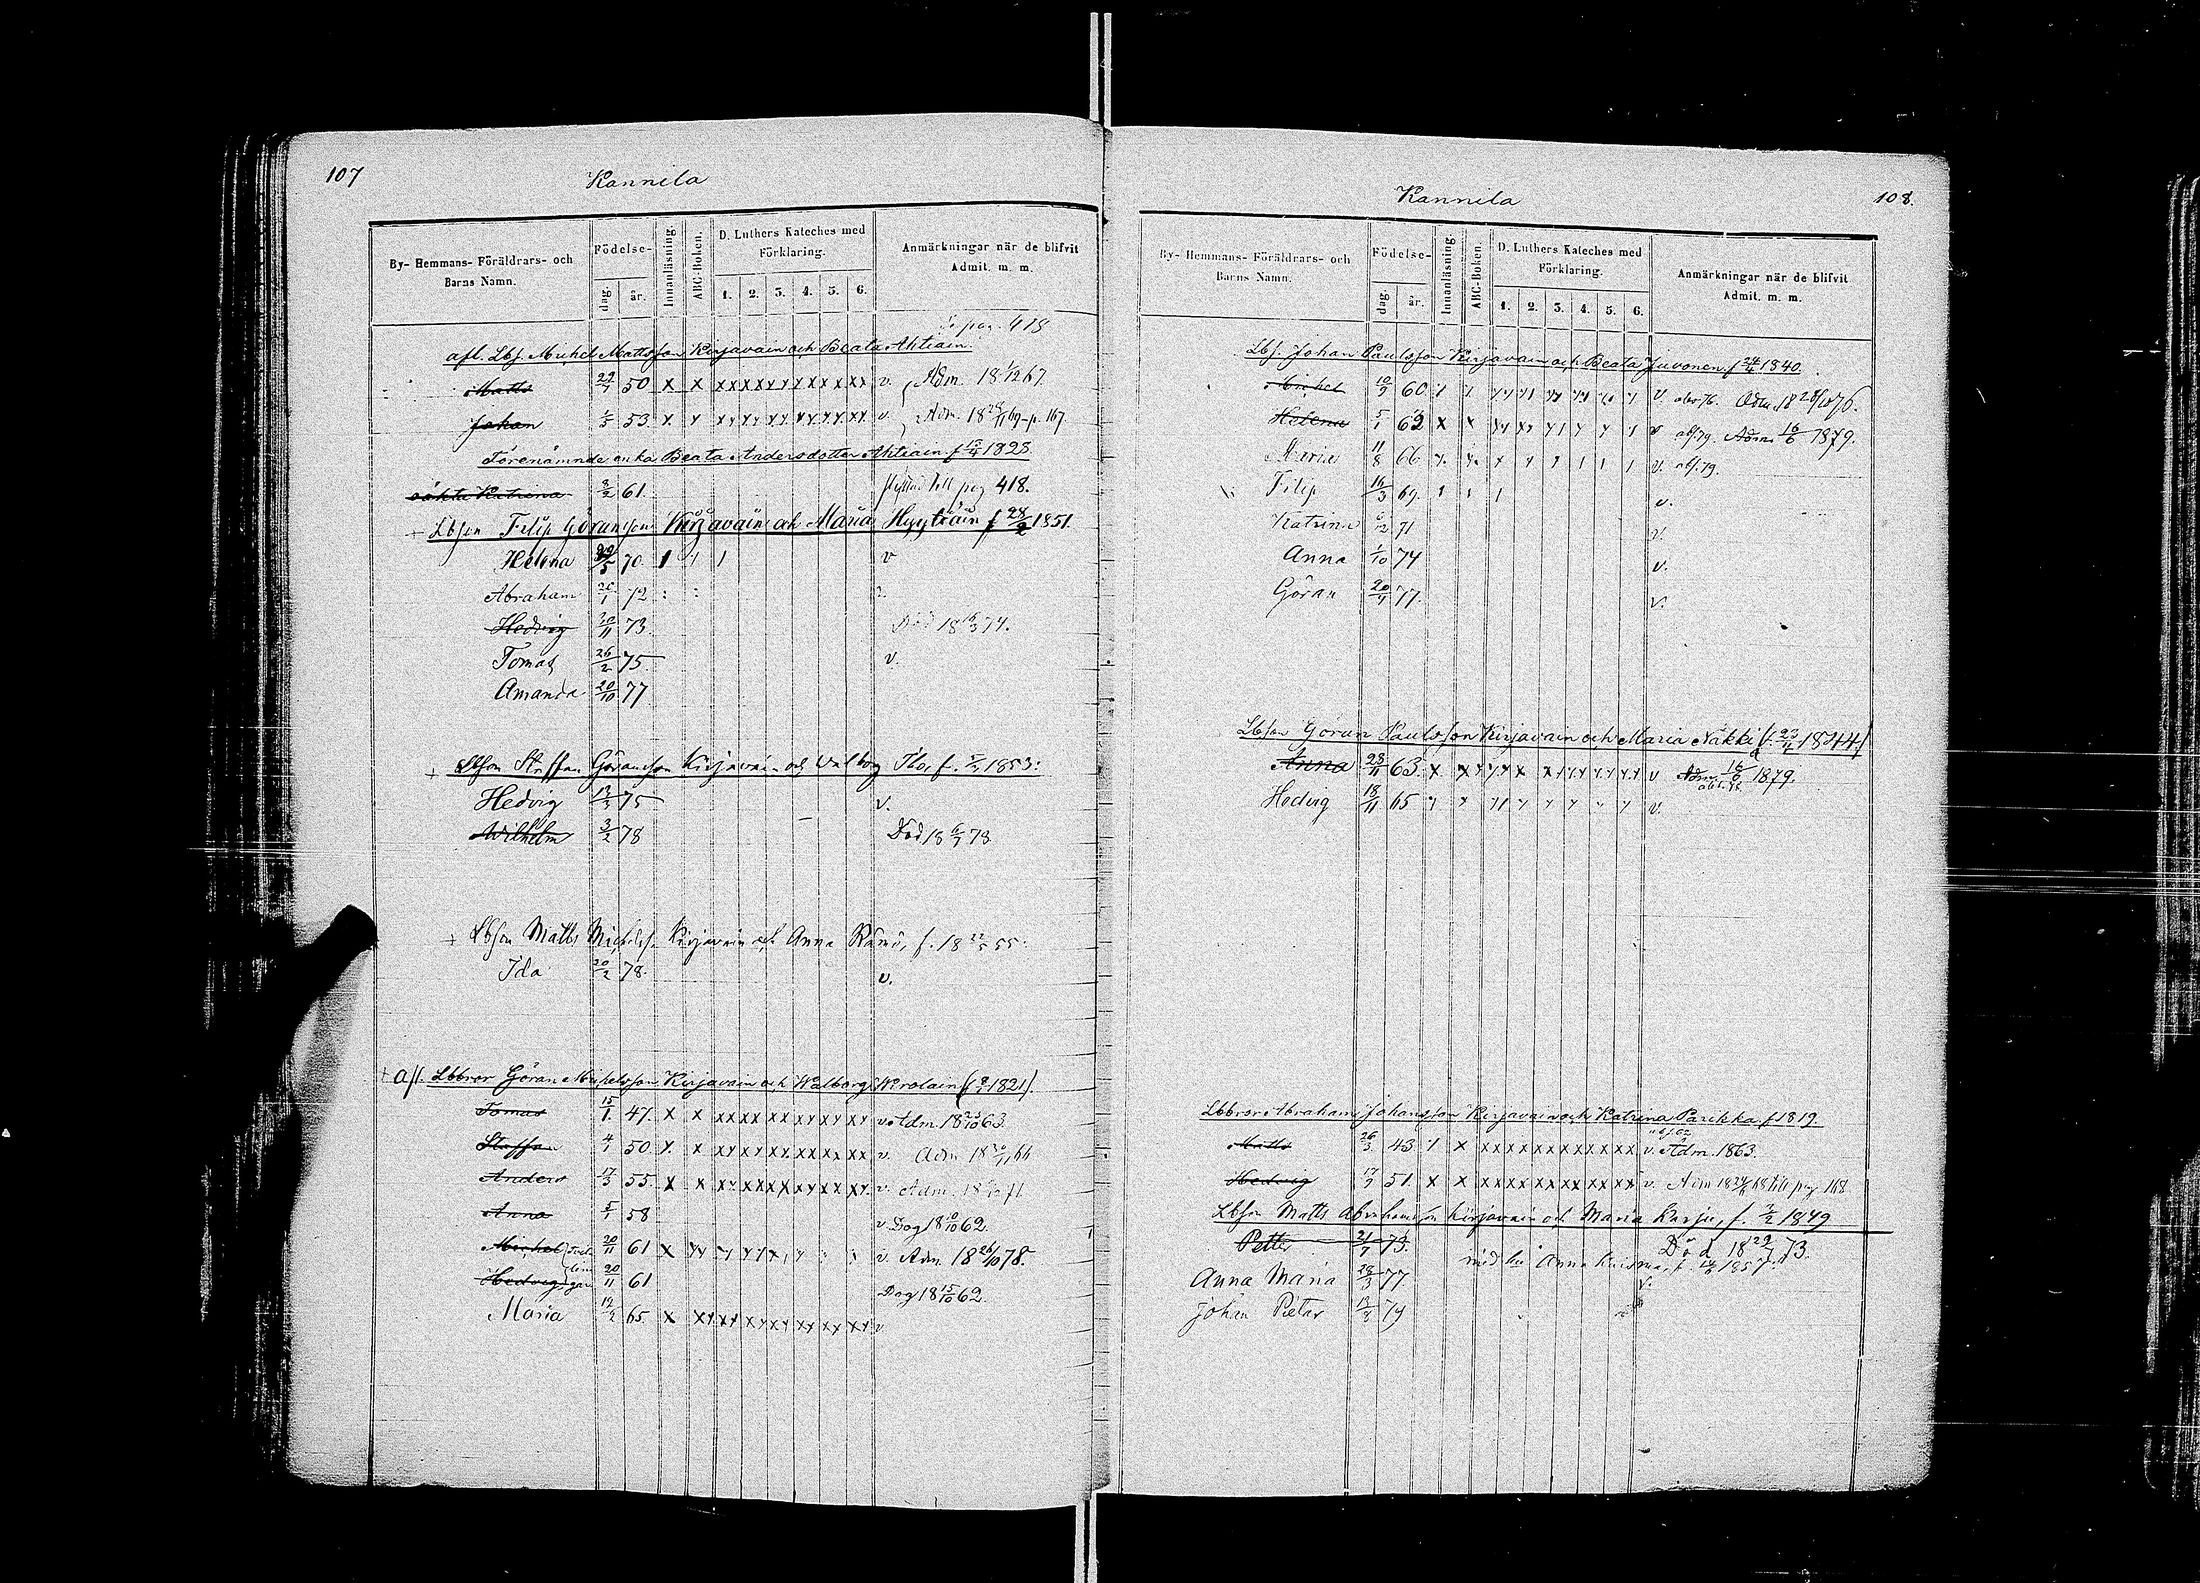 107
Kannila
By- Hemmans- Föräldrars- och Barns Namn.
Födelse-
dag. år.
Innanläsning.
ABC-Boken.
D. Luthers Kateches med Förklaring.
1. 2. 3. 4. 5. 6.
Anmärkningar när de blifvit Admit. m. m.
pag. 418
afl. Lbs. Michel Mattsson Kirjavain och Beata Ahtiain
Matts 29/7 50 x x xx xx xx xx xx xx v. Adm. 18 1/12 67.
Johan 1/5 53 x x xx xx xx xx xx xx v. Adm. 18 28/11 69 p. 167.
Förenämnde enka Beata Andersdotter Ahtiain f 15/4 1828
oäkta Katrina 8/2 61. flyttad till pag 418.
+ Lbson Filip Göransson Kirjavain och Maria Hyytiäin f 28/2 1851.
Helena 70. 1 1 1 v
Abraham 26/1 72
Hedvig 20/11 73. Död 18 74.
Tomas 26/2 75 v.
Amanda 20/10 77
+ Lbson Staffan Göransson Kirjavain och Valborg Ilo, f. 1853:
Hedvig 13/3 75 v.
Wilhelm 3/2 78 Död 18 6/7 78
+ Lbson Matts Michelss. Kirjavain och Anna Rämö, f. 18 22/5 55.
Ida 20/2 78. v.
+ Afl. Lbbror Göran Michelsson Kirjavain och Walborg Wirolain (f 1821).
Tomas 15/1 47. x x xx xx xx xx xx xx v. Adm. 18 63.
Staffan 4/1 50. x x xx xx xx xx xx xx v. Adm 18 66
Anders 17/3 55. x x xx xx xx xx xx xx v. Adm. 18 71
Anna 5/1 58 v Dog 18 62.
Michel 20/11 61 v. Adm. 18 26/10 78.
Hedvig 20/11 61 Dog 18 15/10 62
Maria 65. x xx xx xx xx xx xx v.
Kannila
108.
By- Hemmans- Föräldrars- och Barns Namn.
Födelse-
dag år.
Innanläsning.
ABC-Boken.
D. Luthers Kateches med Förklaring.
1. 2. 3. 4. 5. 6.
Anmärkningar när de blifvit Admit. m. m.
Lbs. Johan Paulsson Kirjavain och Beata Juvonen. f 24/4 1840.
Michel 10/9 60. v. Adm. 18 28/10 76.
Helena 5/1 62 x x v abs. 79. Adm. 16/6 1879.
Maria 11/8 66 v. abs. 79.
Filip 16/3 69. 1 1 1 v.
Katrina 71 v.
Anna 1/10 74 v.
Göran 77. v.
Lbson Göran Paulsson Kirjavain och Maria Näkki (f. 23/4 1844)
Anna 28/11 63. x v Adm. 16/6 1879.
Hedvig 18/11 65 v.
Lbbror Abraham Johansson Kirjavain och Katrina Parikka f 1819.
Matts 26/3 43 1 x xx xx xx xx xx xx v. Adm. 1863.
Hedvig 17/9 51. x x xx xx xx xx xx xx v. Adm 18 68 till pag 168
Lbson Matts Abrahamsson Kirjavain och Maria Karju, f. 3/2 1849
Petter 21/7 73. Död 18 29/7 73.
Anna Maria 28/3 77 med hu Anna f. 1857. v.
Johan Peter 79